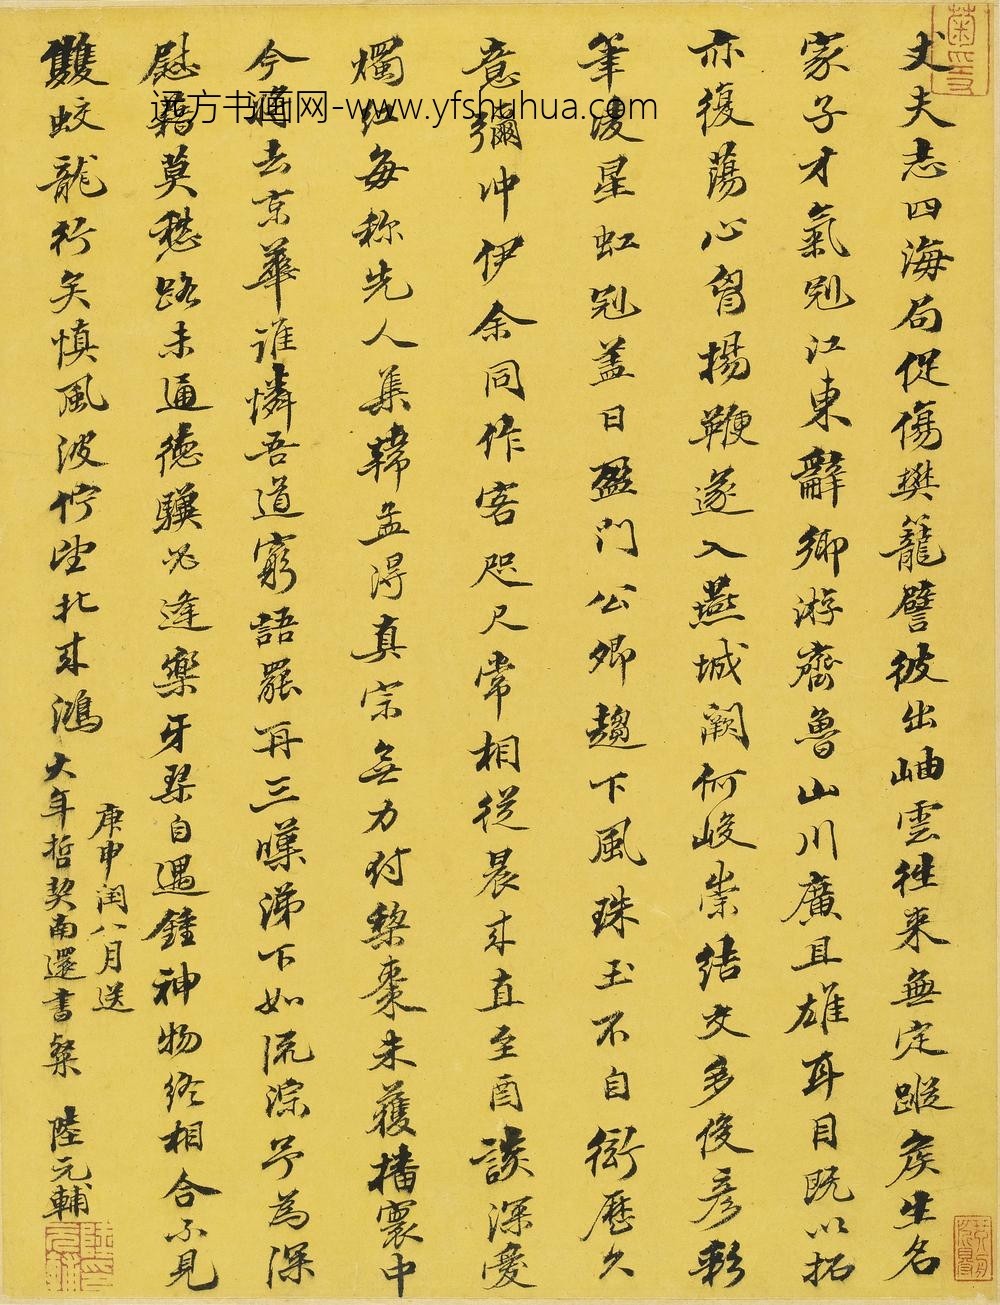 丈夫志四海局促傷樊籠譬彼出岫雲往來無定蹤矦生名
家子才氣冠江東辭鄉游齊魯山川廣且雄耳目既以拓
亦復蕩心胷揚鞭遂入燕城闕何峻崇結交多俊彥彩
筆凌星虹冠蓋日盈門公卿趨下風珠玉不自衒歷久
意彌冲伊余同作客咫尺常相從晨来直至酉談深憂
燭紅每称先人集韓孟得真宗無力付棃棗未獲播寰中
今將去京華誰憐吾道窮語罷再三嘆涕下如流淙予為深
慰藉莫愁路未通德驥必逢樂牙琴自遇鍾神物終相合不見
雙蛟龍行矣慎風波佇望北来鴻
庚申闰八月送
大年哲契南還書
陸元輔
菊
陸元輔印
远方书画网-www.yfshuhua.com